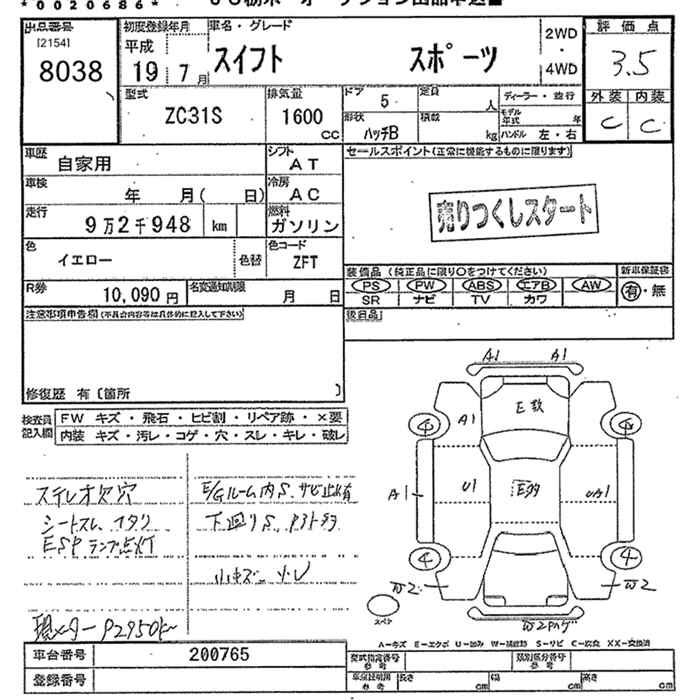 *0020686*
出品番号
[2154]
8038
初度登録年月
平成
19 年 7 月
車名・グレード
スイフト スポーツ
2WD
・
4WD
評価点
3.5
外装 内装
C C
型式
ZC31S
排気量
1600
cc
ドア
5
定員
人
形状
ハッチB
積載
kg
ディーラー・並行
モデル年式 年
ハンドル 左・右
車歴
自家用
シフト
AT
車検
年 月( 日)
冷房
AC
走行
9万2千948 km
燃料
ガソリン
色
イエロー
色替
色コード
ZFT
R券
10,090 円
名変通知期限
月 日
セールスポイント(正常に機能するものに限ります)
売りつくしスタート
装備品(純正品に限り○をつけてください)
PS PW ABS エアB AW
SR ナビ TV カワ
新車保証書
有・無
後日品
注意事項申告欄(不具合内容等は具体的に記入して下さい)
修復歴 有〔箇所 〕
検査員記入欄
FW キズ・飛石・ヒビ割・リペア跡・×要
内装 キズ・汚レ・コゲ・穴・スレ・キレ・破レ
ステレオ欠穴
シートスレ
ESPランプ点灯
E/Gルーム内S、サビ止有
下廻りS
A1 A1
E数
A1
4 4
A1
U1
E多
UA1
4 4
W2
W2
スペア
A-キズ E-エクボ U-凹み W-補修跡 S-サビ C-腐食 XX-交換済
車台番号
200765
登録番号
型式指定番号
参考
類別区分番号
参考
車庫証明用
参考
長さ cm 幅 cm 高さ cm